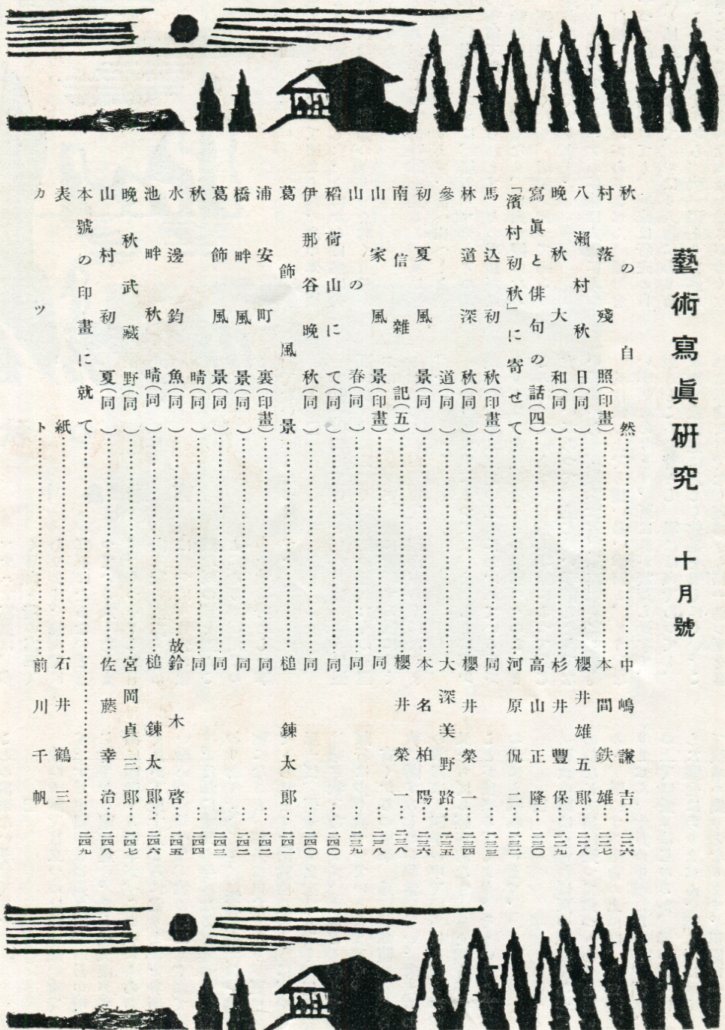 藝術寫眞研究 十月號
秋の自然…中嶋謙吉…二二六
村落殘照(印畫)…本間鉄雄…二二七
八瀬村秋日(同)…櫻井雄五郞…二二八
晚秋大和(同)…杉井豐保…二二九
寫眞と俳句の話(四)…高山正隆…二三〇
「濱村初秋」に寄せて…河原侃二…二三二
馬込初秋(印畫)…同…二三三
林道深秋(同)…櫻井榮一…二三四
參道(同)…大深美野路…二三五
初夏風景(同)…本名柏陽…二三六
南信雜記(五)…櫻井榮一…二三八
山家風景(印畫)…同…二三八
山の春(同)…同…二三九
稻荷山にて(同)…同…二四〇
伊那谷晚秋(同)…同…二四〇
葛飾風景…槌鍊太郞…二四一
浦安町裏(印畫)…同…二四二
橋畔風景(同)…同…二四二
葛飾風景(同)…同…二四三
秋晴(同)…同…二四四
水邊釣魚(同)…故鈴木啓…二四五
池畔秋晴(同)…槌鍊太郞…二四六
晚秋武藏野(同)…宮岡貞三郞…二四七
山村初夏(同)…佐藤幸治…二四八
本號の印畫に就て…二四九
表紙…石井鶴三
カット…前川千帆